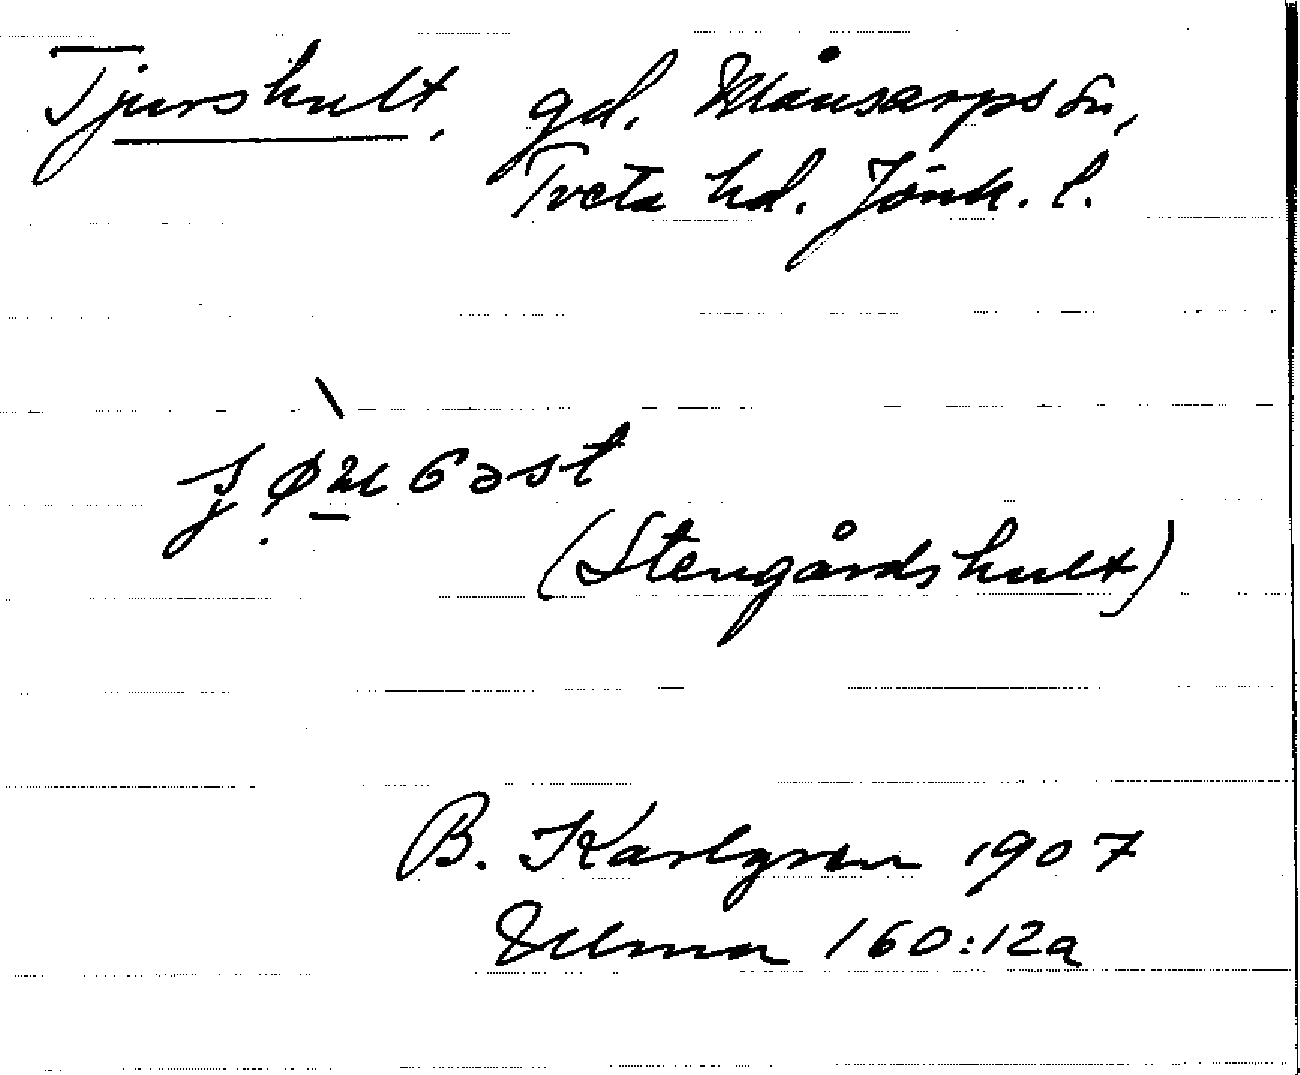 Tjurshult, gd. Månsarps sn,
Tveta hd. Jönk. l.
(Stengårdshult)
B. Karlgren 1907
Ulma 160:12a